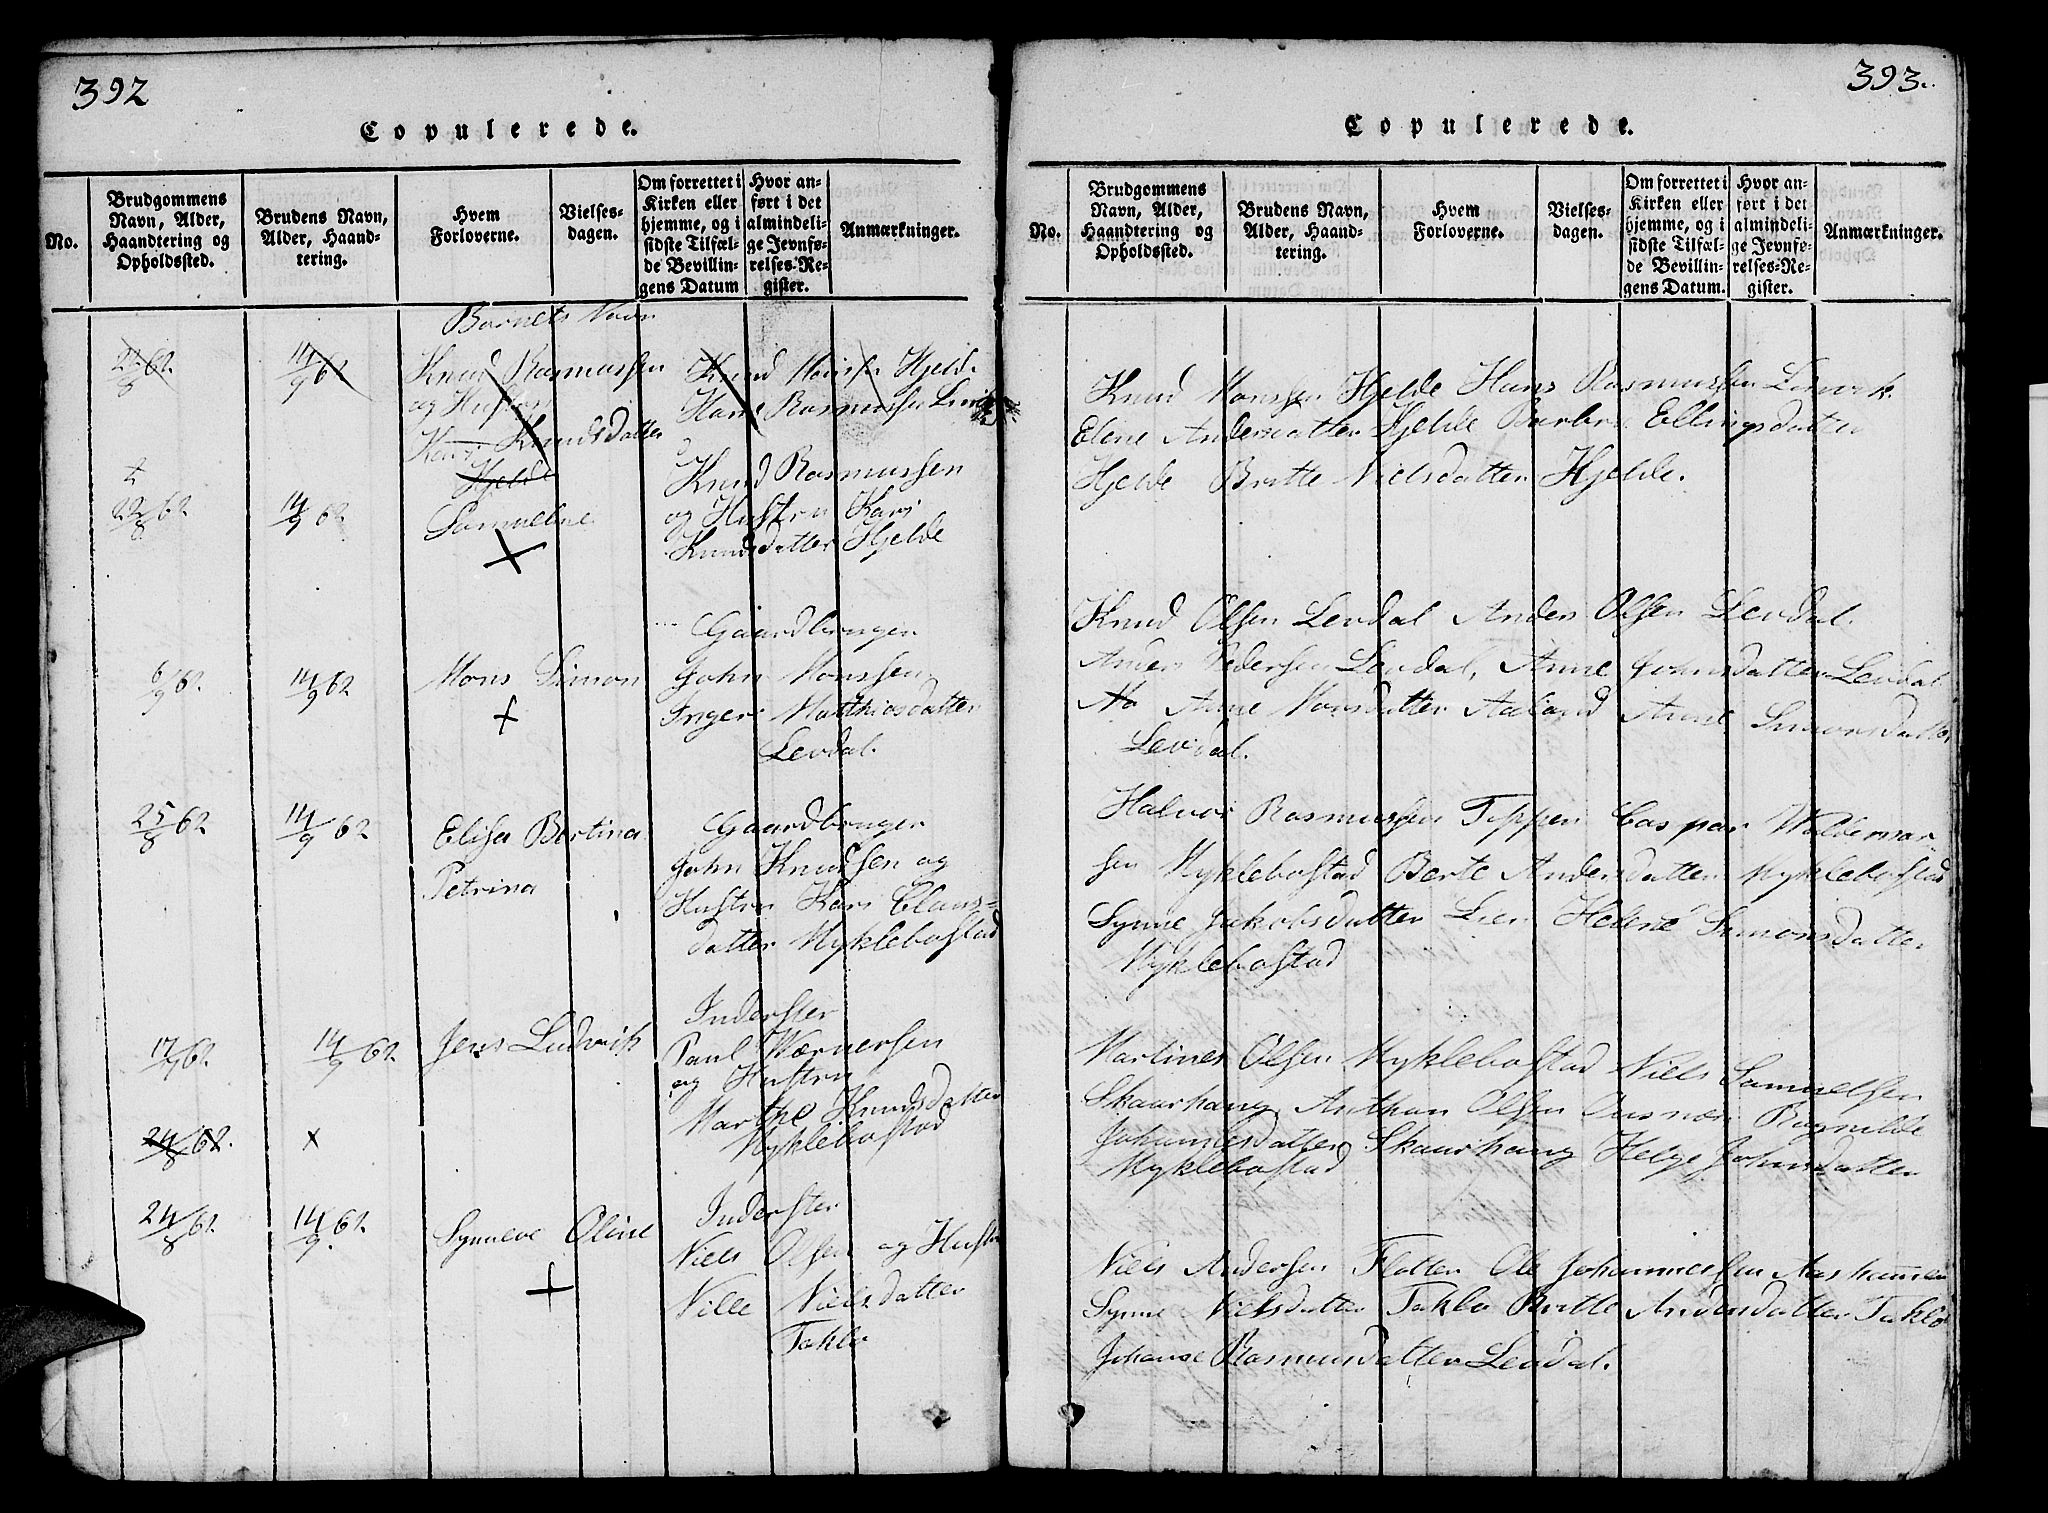 392
Copulerede.
No.
Brudgommens Navn, Alder, Haandtering og Opholdssted.
Brudens Navn, Alder, Haandtering.
Hvem Forloverne.
Vielsesdagen.
Om forrettet i Kirken eller hjemme, og i sidste Tilfælde Bevillingens Datum
Hvor anført i det almindelige Jevnførelses-Register.
Anmærkninger.
Barnets Navn
22/8 62 14/9 62 Knud Rasmussen Knud Monsen Hjelde
og Hustru Hans Rasmussen
Kari Knudsdatter
Hjelde Knud Rasmussen
22/8 62 14/9 62 Samueline og Hustru Kari
Knudsdatter Hjelde
Gaardbruger
6/9 62. 14/9 62 Mons Simon John Monssen
Inger Matthiasdatter
Levdal.
25/8 62 14/9 62 Elisa Bertina Gaardbruger
John Knudsen og
Petrina Hustru Kari Claus=
datter Myklebostad
Inderster
17/7 62. 14/9 62 Jens Ludvik Paul Wærnersen
og Hustru
Marthe Knudsdatter
24/8 62. x Myklebostad
24/8 62 14/9 62 Synneve Oline Inderster
Niels Olsen og Hustru
Nille Nielsdatter
Taklo
393.
Copulerede.
No.
Brudgommens Navn, Alder, Haandtering og Opholdssted.
Brudens Navn, Alder, Haandtering.
Hvem Forloverne.
Vielsesdagen.
Om forrettet i Kirken eller hjemme, og i sidste Tilfælde Bevillingens Datum.
Hvor anført i det almindelige Jevnførelses-Register.
Anmærkninger.
Knud Monssen Hjelde Hans Rasmussen
Eline Andersdatter Hjelde Barbro Ellingsdatter
Hjelde Britte Nielsdatter Hjelde.
Knud Olsen Levdal Anders Olsen Levdal.
Anders Pedersen Levdal, Anne Johnsdatter Levdal
Anne Monsdatter Aaland Anne Simonsdatter
Levdal.
Halvor Rasmussen Tippen Caspar Waldemar
sen Myklebostad Berte Andersdatter Myklebostad
Synne Jakobsdatter Lien Helene Simonsdatter
Myklebostad
Martines Olsen Myklebostad Niels Samuelsen
Skaarhaug Anthon Olsen Ousnær Ragnilde
Johannesdatter Skaarhaug Helge Johnsdatter
Myklebostad
Niels Andersen Flotten Ole Johannessen Aashammer
Synne Nielsdatter Taklo Britte Andersdatter Taklo
Johanse Rasmusdatter Levdal.